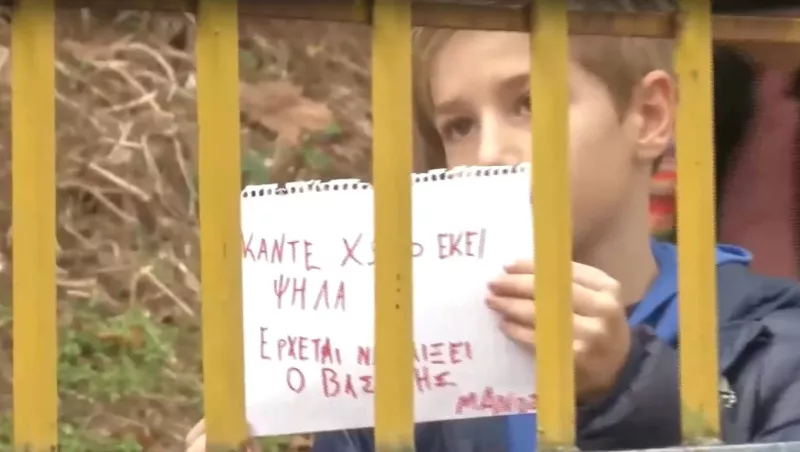 ΚΑΝΤΕ ΧΩΡΟ ΕΚΕΙ
ΨΗΛΑ
ΕΡΧΕΤΑΙ ΝΑ ΠΑΙΞΕΙ
Ο ΒΑΣΙΛΗΣ
ΜΑΝΟΣ